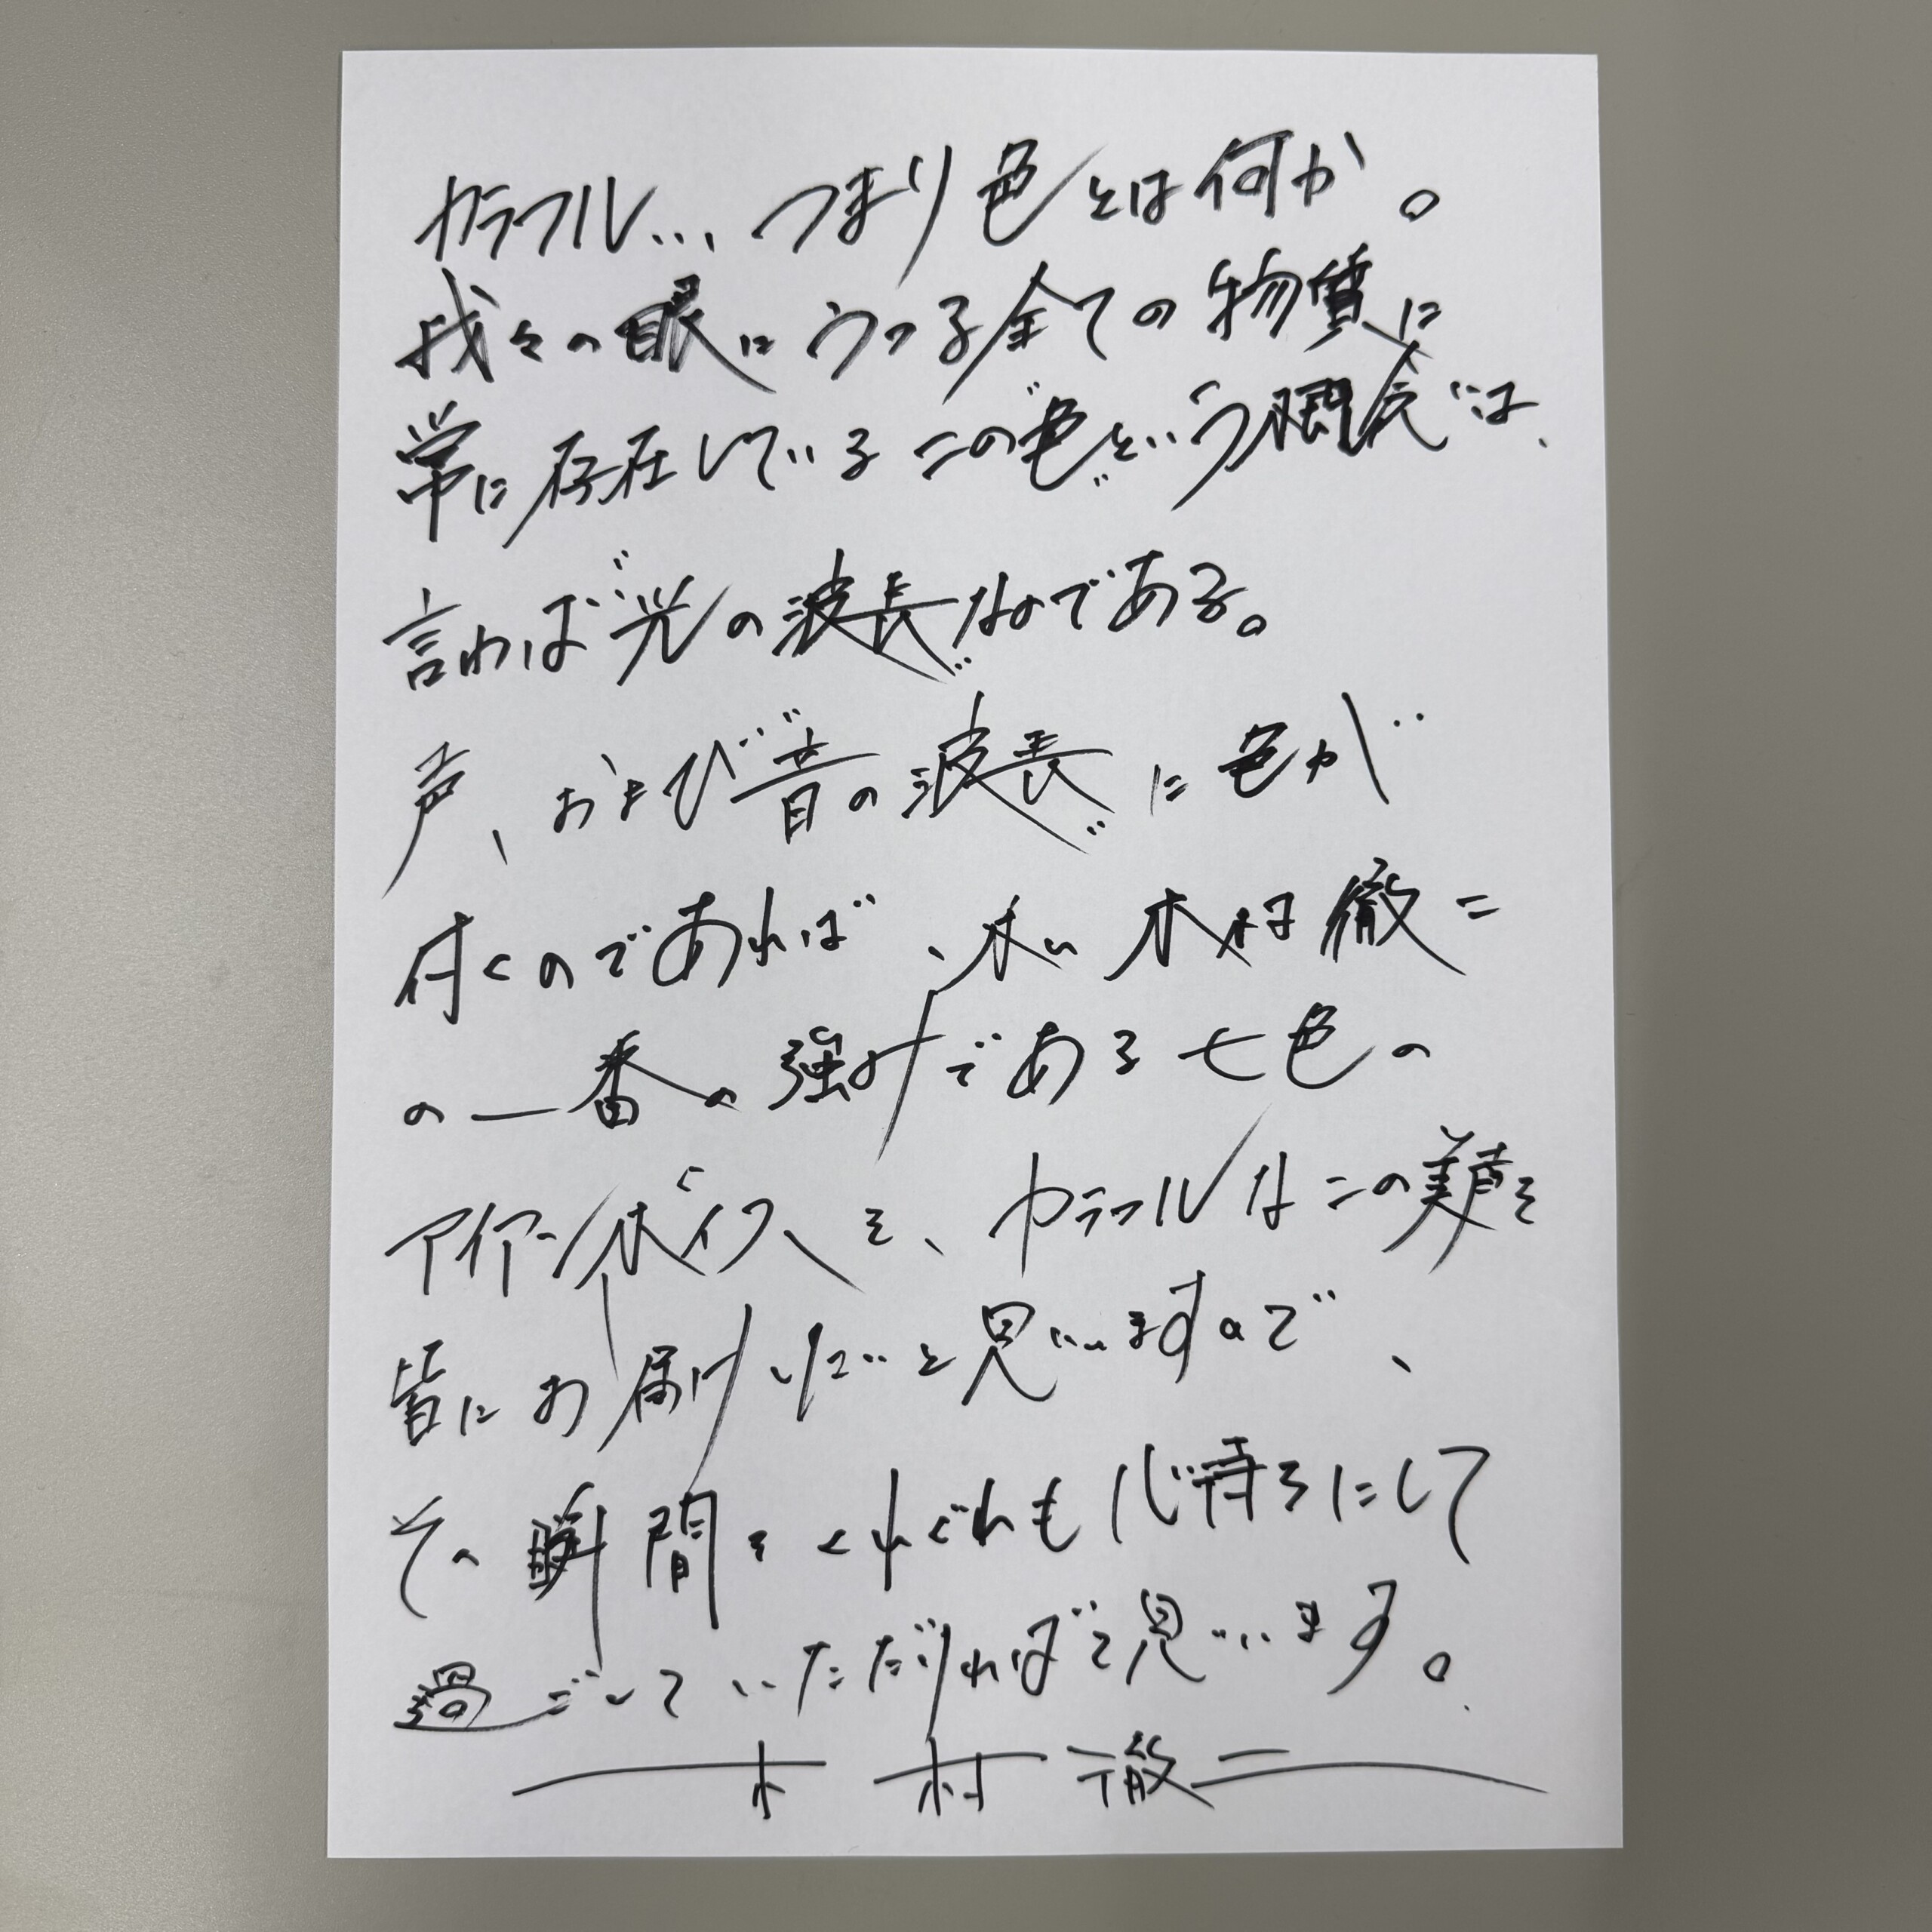 カラフル… つまり色とは何か。
我々の眼にうつる全ての物質に
常に存在しているこの色という概念は、
言わば光の波長なのである。
声、および音の波長に色が
付くのであれば、私 木村徹二
の一番の強みである七色の
アイアンボイスを、カラフルなこの声を
皆にお届けしたいと思いますので、
その瞬間をくれぐれも心待ちにして
過ごしていただければと思います。
木村徹二